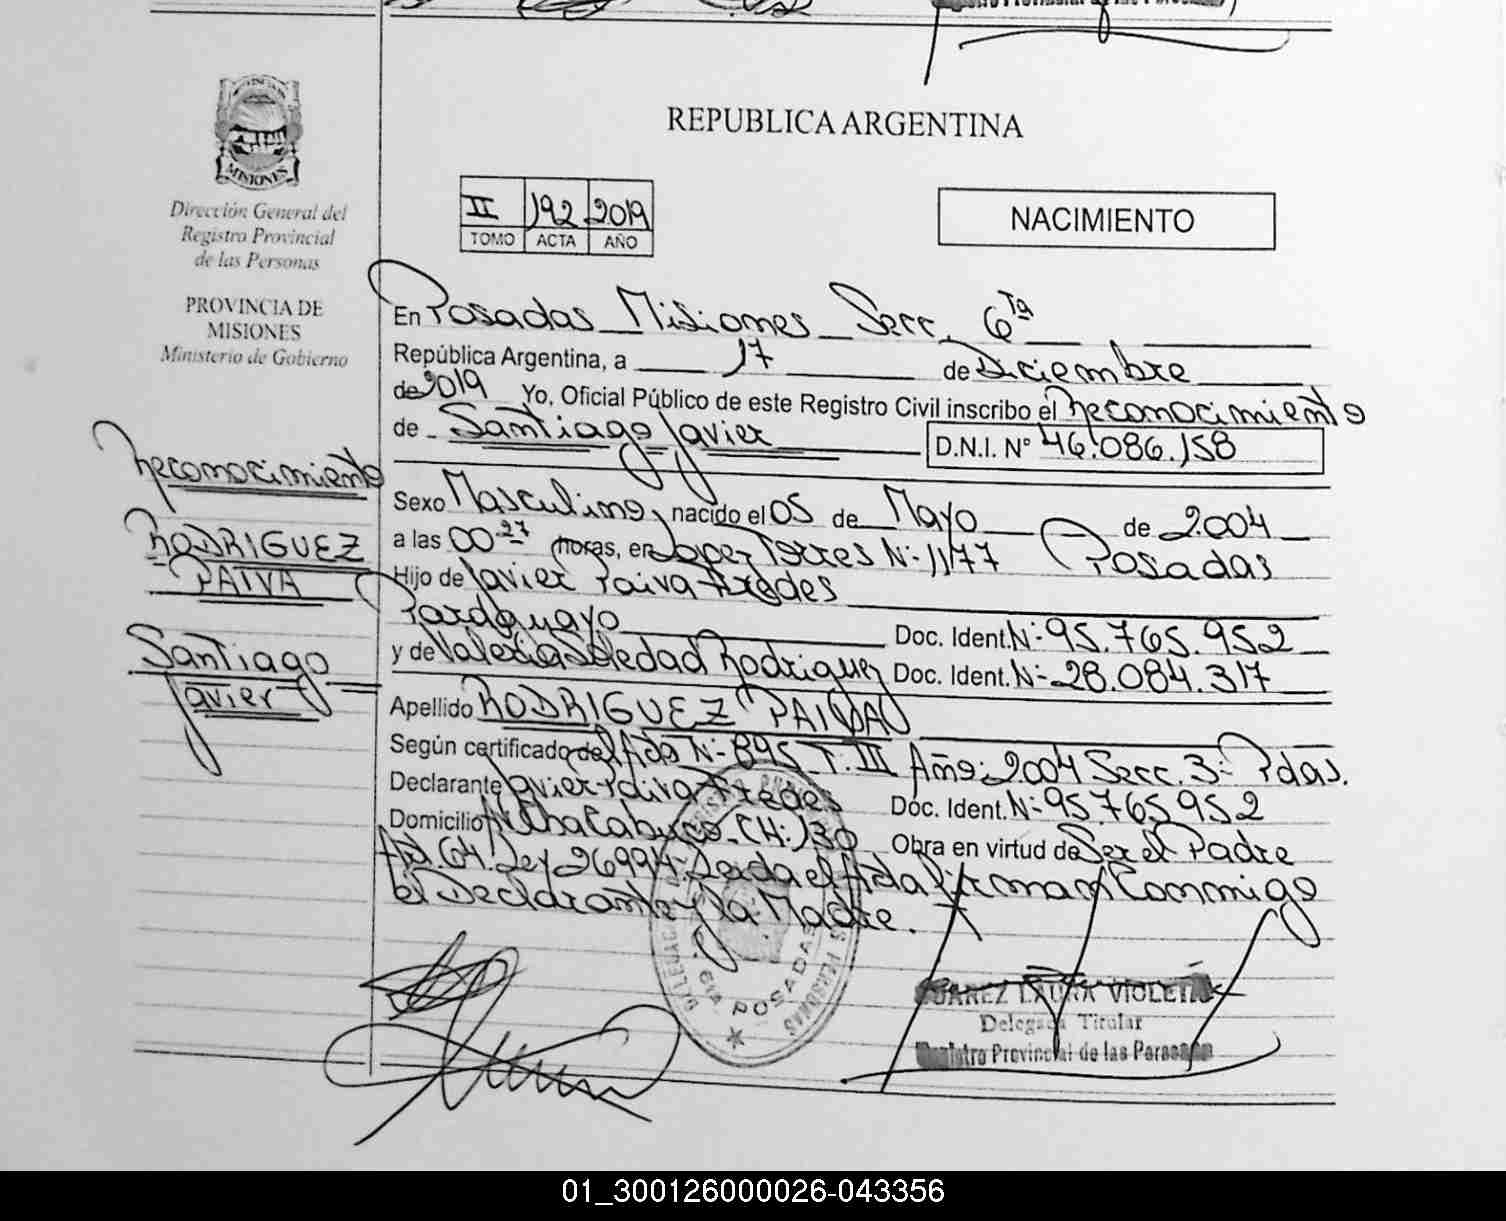 REPUBLICA ARGENTINA
MISIONES
Dirección General del
Registro Provincial
de las Personas
PROVINCIA DE
MISIONES
Ministerio de Gobierno
II 192 2019
TOMO ACTA AÑO
NACIMIENTO
En Posadas Misiones Secc. 6ta
República Argentina, a 17 de Diciembre
de 2019 Yo, Oficial Público de este Registro Civil inscribo el Reconocimiento
de Santiago Javier D.N.I. Nº 46.086.158
Reconocimiento
RODRIGUEZ
PAIVA
Santiago
Javier
Sexo Masculino, nacido el 05 de Mayo de 2.004
a las 00 27 horas, en Lopez Torres Nº 1177 Posadas
Hijo de Javier Paiva Fredes
Paraguayo Doc. Ident. Nº 95.765.952
y de Valeria Soledad Rodriguez Doc. Ident. Nº 28.084.317
Apellido RODRIGUEZ PAIVA
Según certificado del Acta Nº 895 T. III Año: 2004 Secc. 3º Pdas.
Declarante Javier Paiva Fredes Doc. Ident. Nº 95.765.952
Domicilio CH: 130 Obra en virtud de Ser el Padre
Art. 64. Ley 26994. Leida el Acta firman Conmigo
el Declarante y la Madre.
POSADAS
SUAREZ LAURA VIOLETA
Delegada Titular
Registro Provincial de las Personas
01_300126000026-043356